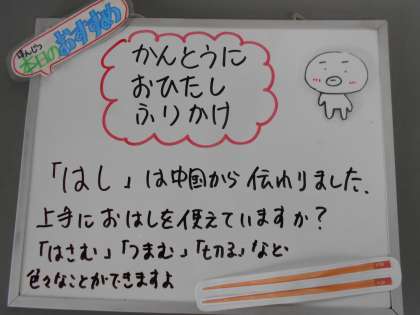 ほんじつ
本日のおすすめ
かんとうに
おひたし
ふりかけ
「はし」は中国から伝わりました。
上手におはしを使えていますか？
「はさむ」「つまむ」「切る」など
色々なことができますよ